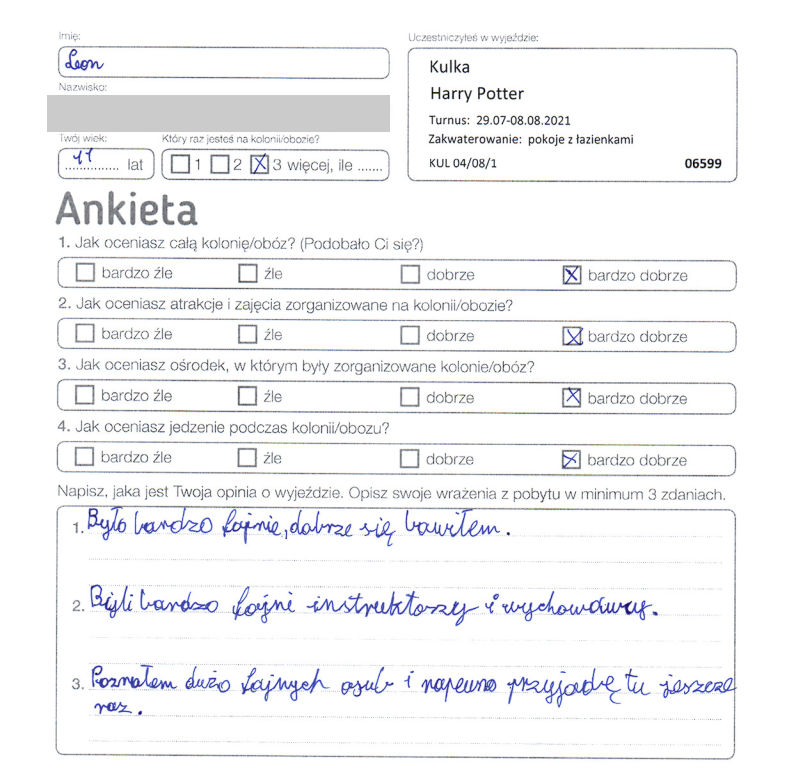 Imię:
Leon
Nazwisko:
Twój wiek:
11 lat
Który raz jesteś na kolonii/obozie?
1 2 3 więcej, ile .......
Uczestniczyłeś w wyjeździe:
Kulka
Harry Potter
Turnus: 29.07-08.08.2021
Zakwaterowanie: pokoje z łazienkami
KUL 04/08/1 06599
Ankieta
1. Jak oceniasz całą kolonię/obóz? (Podobało Ci się?)
bardzo źle źle dobrze bardzo dobrze
2. Jak oceniasz atrakcje i zajęcia zorganizowane na kolonii/obozie?
bardzo źle źle dobrze bardzo dobrze
3. Jak oceniasz ośrodek, w którym były zorganizowane kolonie/obóz?
bardzo źle źle dobrze bardzo dobrze
4. Jak oceniasz jedzenie podczas kolonii/obozu?
bardzo źle źle dobrze bardzo dobrze
Napisz, jaka jest Twoja opinia o wyjeździe. Opisz swoje wrażenia z pobytu w minimum 3 zdaniach.
1. Było bardzo fajnie, dobrze się bawiłem.
2. Byli bardzo fajni instruktorzy i wychowawcy.
3. Poznałem dużo fajnych osub i napewno przyjadę tu jeszcze
raz.